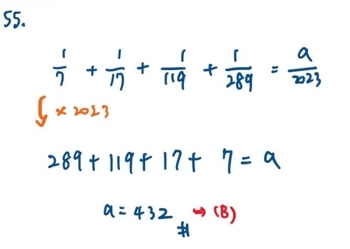 55.
1/7 + 1/17 + 1/119 + 1/289 = a/2023
× 2023
289 + 119 + 17 + 7 = a
a = 432 # → (B)